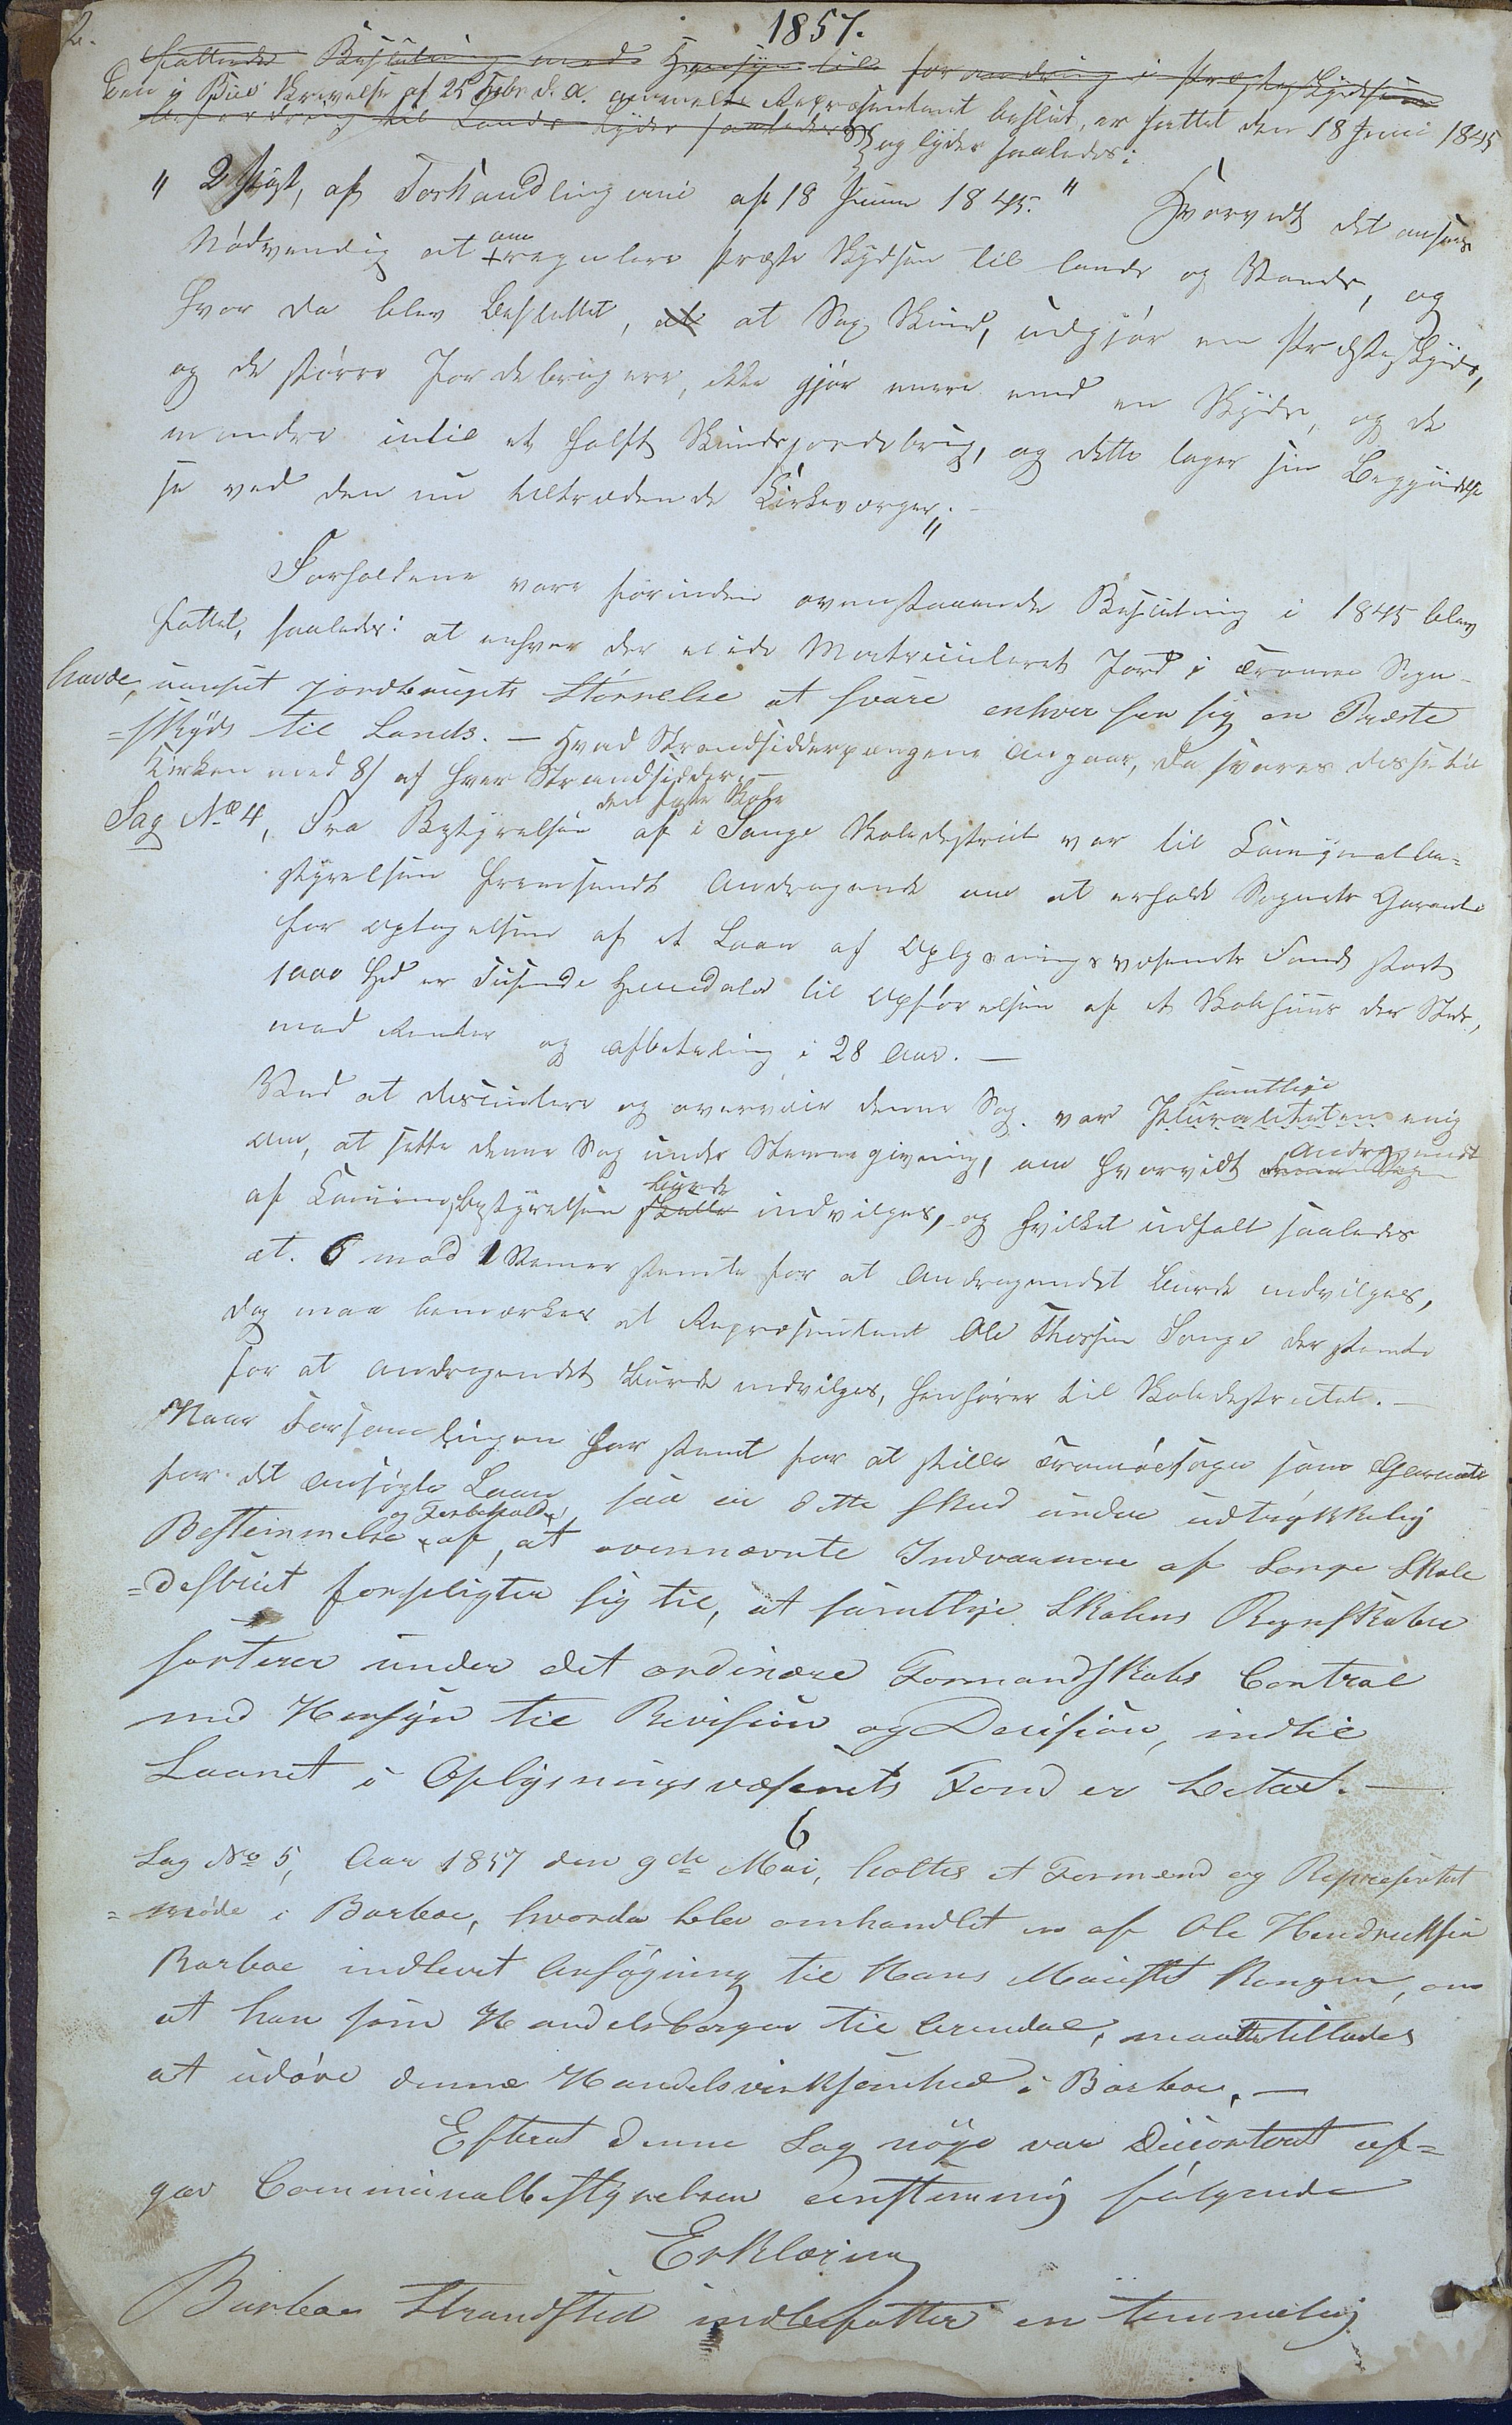 2.
1857.
fattede Beslutning med Hensyn til forandring i Præsteskydsen
Den i Skrivelse af 25 Febr d. A. anmeldte Repræsentant beslut, er fattet den 18 Juni 1845
befordring til Lands lyder saaledes og lyder saaledes:
" 2 af Forhandlingerne af 18 Juni 1845." Hvorvidt det ansees
Nödvendig at om regulere Præste Skydsen til lands og Vands, og
hvor da blev besluttet, at at Sex Skind, udgjör en Præsteskyds,
og de större Jordebrugere, ikke gjör mere end en Skyds, og de
mindre indtil et halvt Skinds jordebrug, og dette tager sin Begyndelse
se ved den nu tiltrædende Kirkeværger."
Forholdene vare förinden ovenstaaende Beslutning i 1845 blev
fattet, saaledes: at enhver der eiede Matriculeret Jord i Tromøe Sogn
havde, uanset jordbrugets Størrelse at svare enhver for sig en Præste
=skyds til Lands. — Hvad Strandsidderpengene angaar, da svares disse til
Kirken med 8 s af hver Strandsidder. —
Sag No 4, Fra Bestyrelsen den faste Skole af i Songe Skoledistrict var til Comunalbe=
styrelsen fremsendt Andragende om at erholde Sognets Garanti
for Optagelsen af et Laan af Oplysningsvæsenets Fond stort
1000 Spd er Tusinde Speciedaler til Opförelsen af et Skolehuus der Steds,
mod Renter og afbetaling i 28 Aar. —
Ved at discutere og overveie denne Sag var Pluraliteten samtlige enig
om, at sætte denne Sag under Stemmegivning, om hvorvidt denne Sag Andragendet
af Comunebestyrelsen skulle burde indvilges, og hvilket udfalt saaledes
at. 6 mod 1 Stemmer stemte for at Andragendet burde indvilges,
dog maa bemærkes at Repræsentant Ole Thorsen Songe der stemte
for at Andragendet burde indvilges, henhörer til Skoledistrictet. —
Naar Forsamlingen har stemt for at stille Tromöesogn som Garante
for det ansögte Laan, saa er dette skeed under udtrykkelig
Bestemmelse og Forbehold af, at ovennævnte Indvaanere af Songe Skole
=district forpligter sig til, at samtlige Skolens Regnskaber
sorterer under det ordinære Formandskabs Control
med Hensyn til Revision og Decision, indtil
Laanet i Oplysningsvæsenets Fond er betalt. —
6
Sag No 5, Aar 1857 den 9de Mai, holtes et Formænd og Repræsentant
=möde i Barboe, hvorda blev omhandlet en af Ole Hendriksen
Barboe indlevet Ansøgning til Hans Maiestet Kongen, om
at han som Handelsborger til Arendal, maatte tillades
at udöve denne Handelsvirksomhed i Barboe. —
Efterat denne Sag nöye var Discoteret af=
gav Communalbestyrelsen eenstemmig fölgende
Erklæring
Barboe Strandsted indbefatter en temmelig